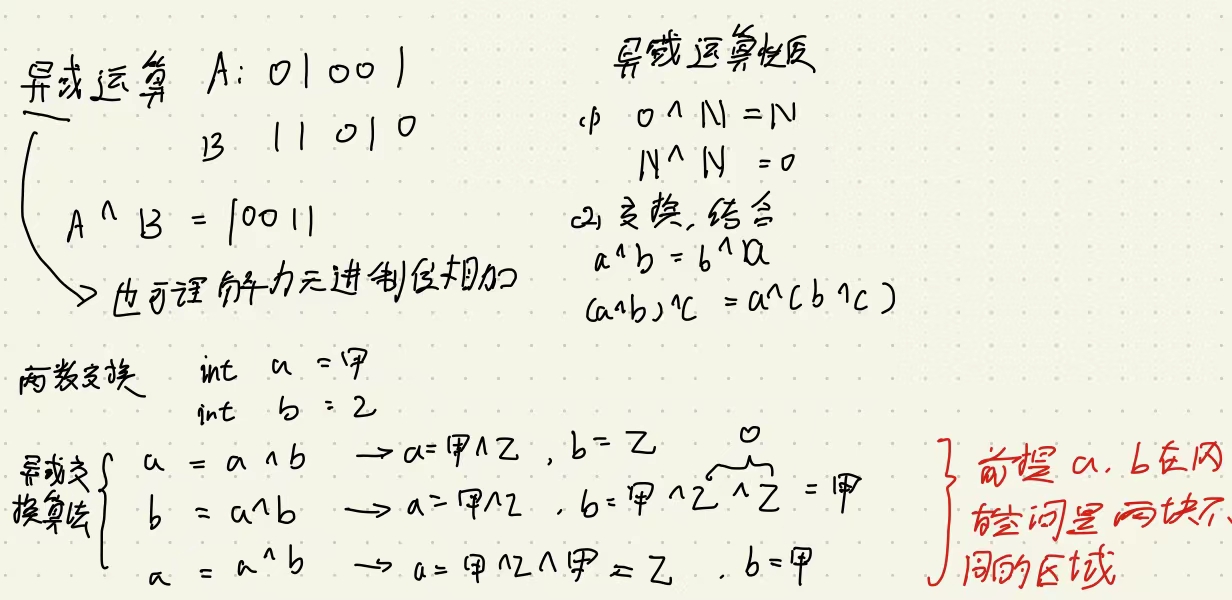 异或运算 A: 01001
B 11010
A ^ B = 10011
也可理解为无进制位相加
异或运算性质
(1) 0 ^ N = N
N ^ N = 0
(2) 交换,结合
a ^ b = b ^ a
(a^b)^c = a^(b^c)
两数交换 int a = 甲
int b = 乙
异或交换算法
a = a ^ b → a = 甲^乙 , b = 乙
0
b = a^b → a = 甲^乙 , b = 甲 ^乙 ^乙 = 甲
a = a^b → a = 甲^乙^甲 = 乙 , b = 甲
前提 a, b在内
存空间是两块不
同的区域